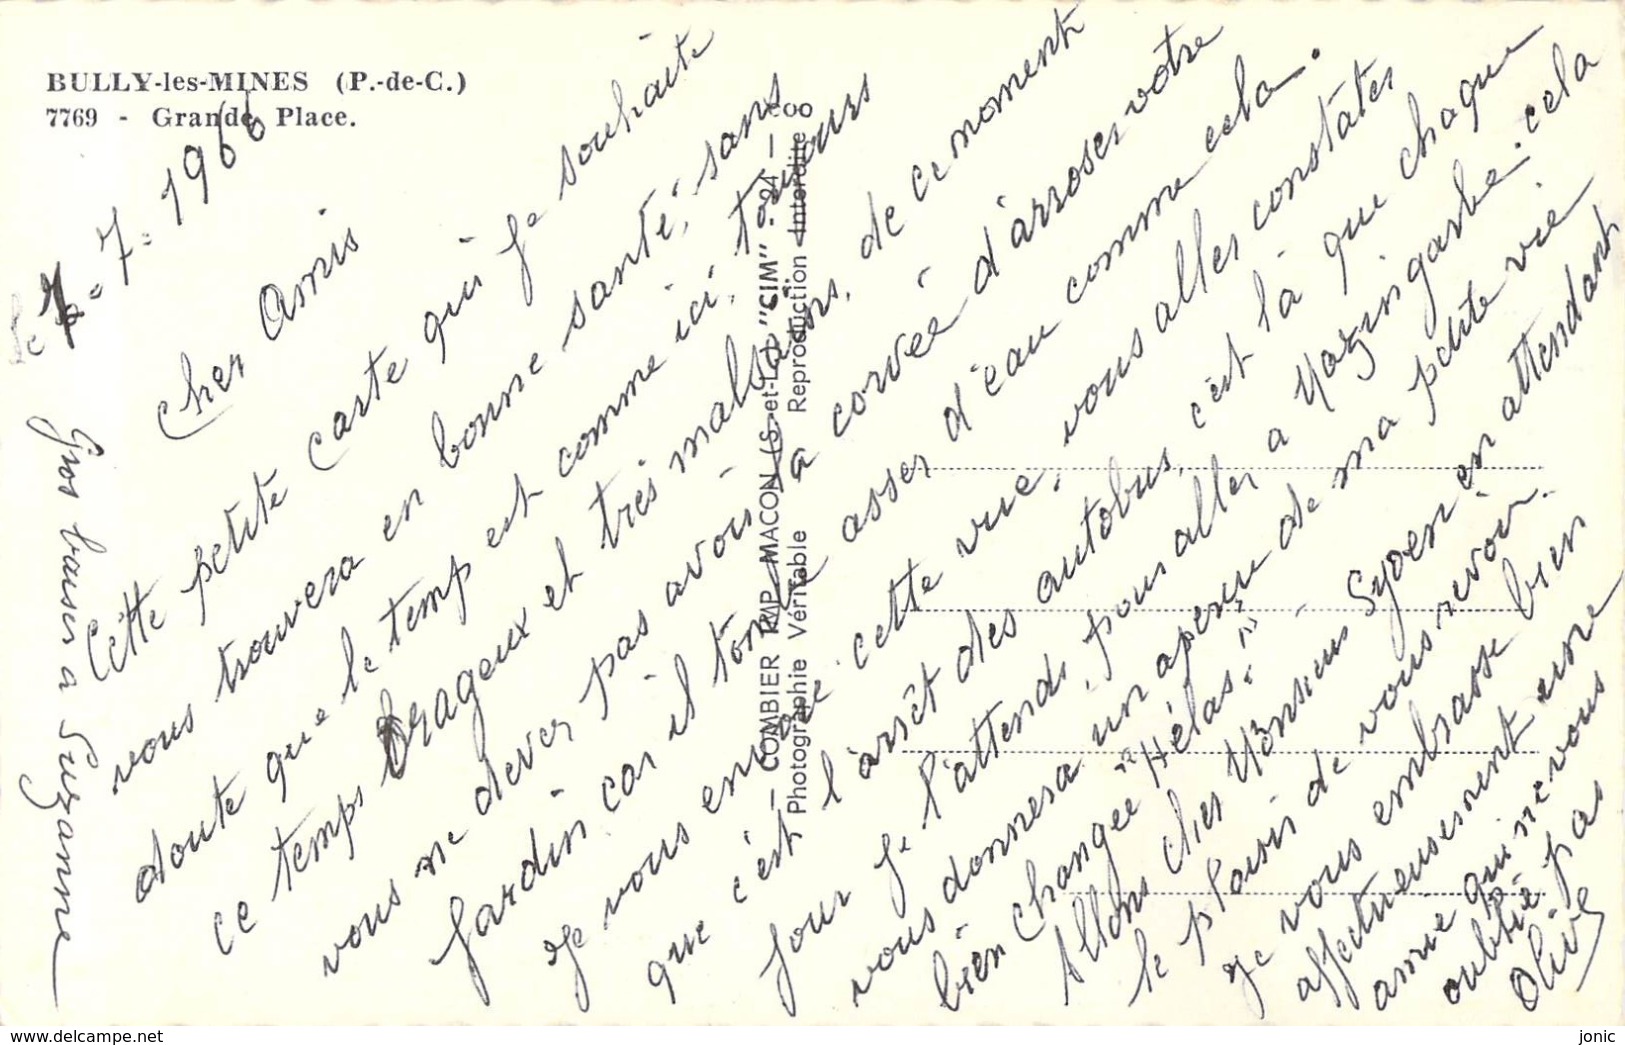 BULLY-les-MINES (P.-de-C.)
7769 - Grande Place.
7-1966
Cher Amis
Cette petite carte qui je souhaite
vous trouvera en bonne santé, sans
doute que le temp est comme ici, toujours
ce temps orageux et très malsains, de ce moment
vous ne dever pas avoir la corvée d'arroser votre
jardin car il tombe asser d'eau comme cela.
Je vous envoie cette vue, vous aller constater
que c'est l'arrêt des autobus, c'est là que chaque
jour je l'attends, pour aller a Mazingarbe. cela
vous donnera un aperçu de ma petite vie
bien changée "Hélas"
Allons cher Monsieur Syoen en attendant
le plaisir de vous revoir.
Je vous embrasse bien
affectueusement une
amie qui ne vous
oublie pas
Olive
Gros baiser a Suzanne
COMBIER IMP. MACON (S.-et-L.) "CIM"
Photographie Véritable Reproduction Interdite
www.delcampe.net
jonic